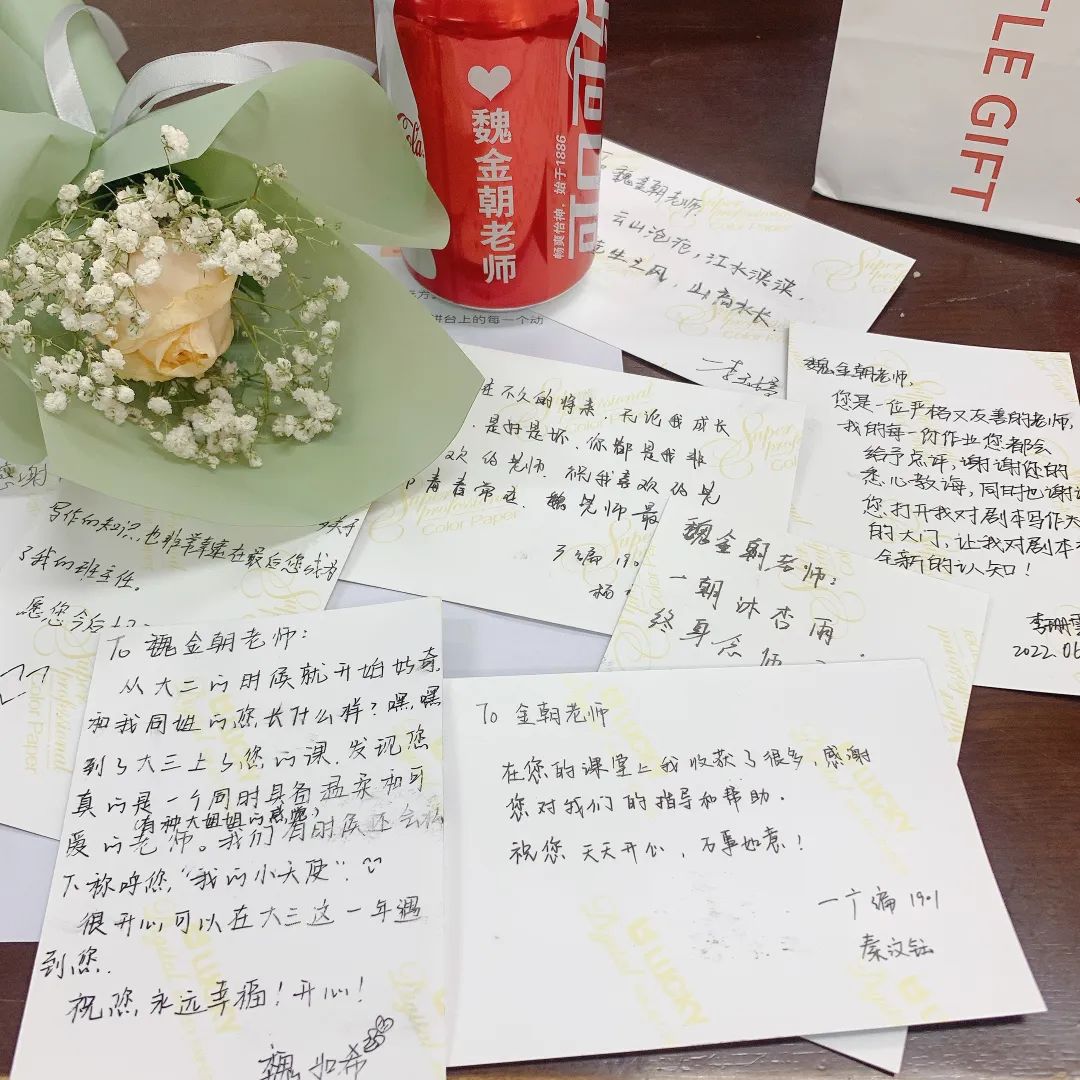 TLE GIFT
魏金朝老师
畅爽怡神，始于1886
讲台上的每一个动
To 魏金朝老师:
云山泡范，江水泱泱，
先生之风，山高水长
一李
Super
professional
Color Paper
在不久的将来，无论我成长
是好是坏，你都是我非
欢的老师，祝我喜欢的
青春常在，魏老师最
广编 190
杨
魏金朝老师，
您是一位严格又友善的老师，
我的每一份作业您都会
给予点评，谢谢您的
悉心教诲，同时也谢谢
您打开我对剧本写作
的大门，让我对剧本
全新的认知！
李珊
2022.06
魏金朝老师：
一朝沐杏雨
终身念师
感谢
关于
写作的知识，也非常幸运在最后您成为
了我的班主任。
愿您今后
To 魏金朝老师：
从大二的时候就开始好奇，
和我同姐的您长什么样？嘿嘿
到了大三上了您的课，发现您
真的是一个同时具备温柔和可
(有种大姐姐的感觉)
爱的老师。我们有时候还会私
下称呼您，“我的小天使”：
很开心可以在大三这一年遇
到您.
祝您，永远幸福！开心！
魏如希
To 金朝老师
在您的课堂上我收获了很多，感谢
您对我们的指导和帮助.
祝您 天天开心，万事如意！
一广编 1901
秦汉钰
LUCKY
Digital